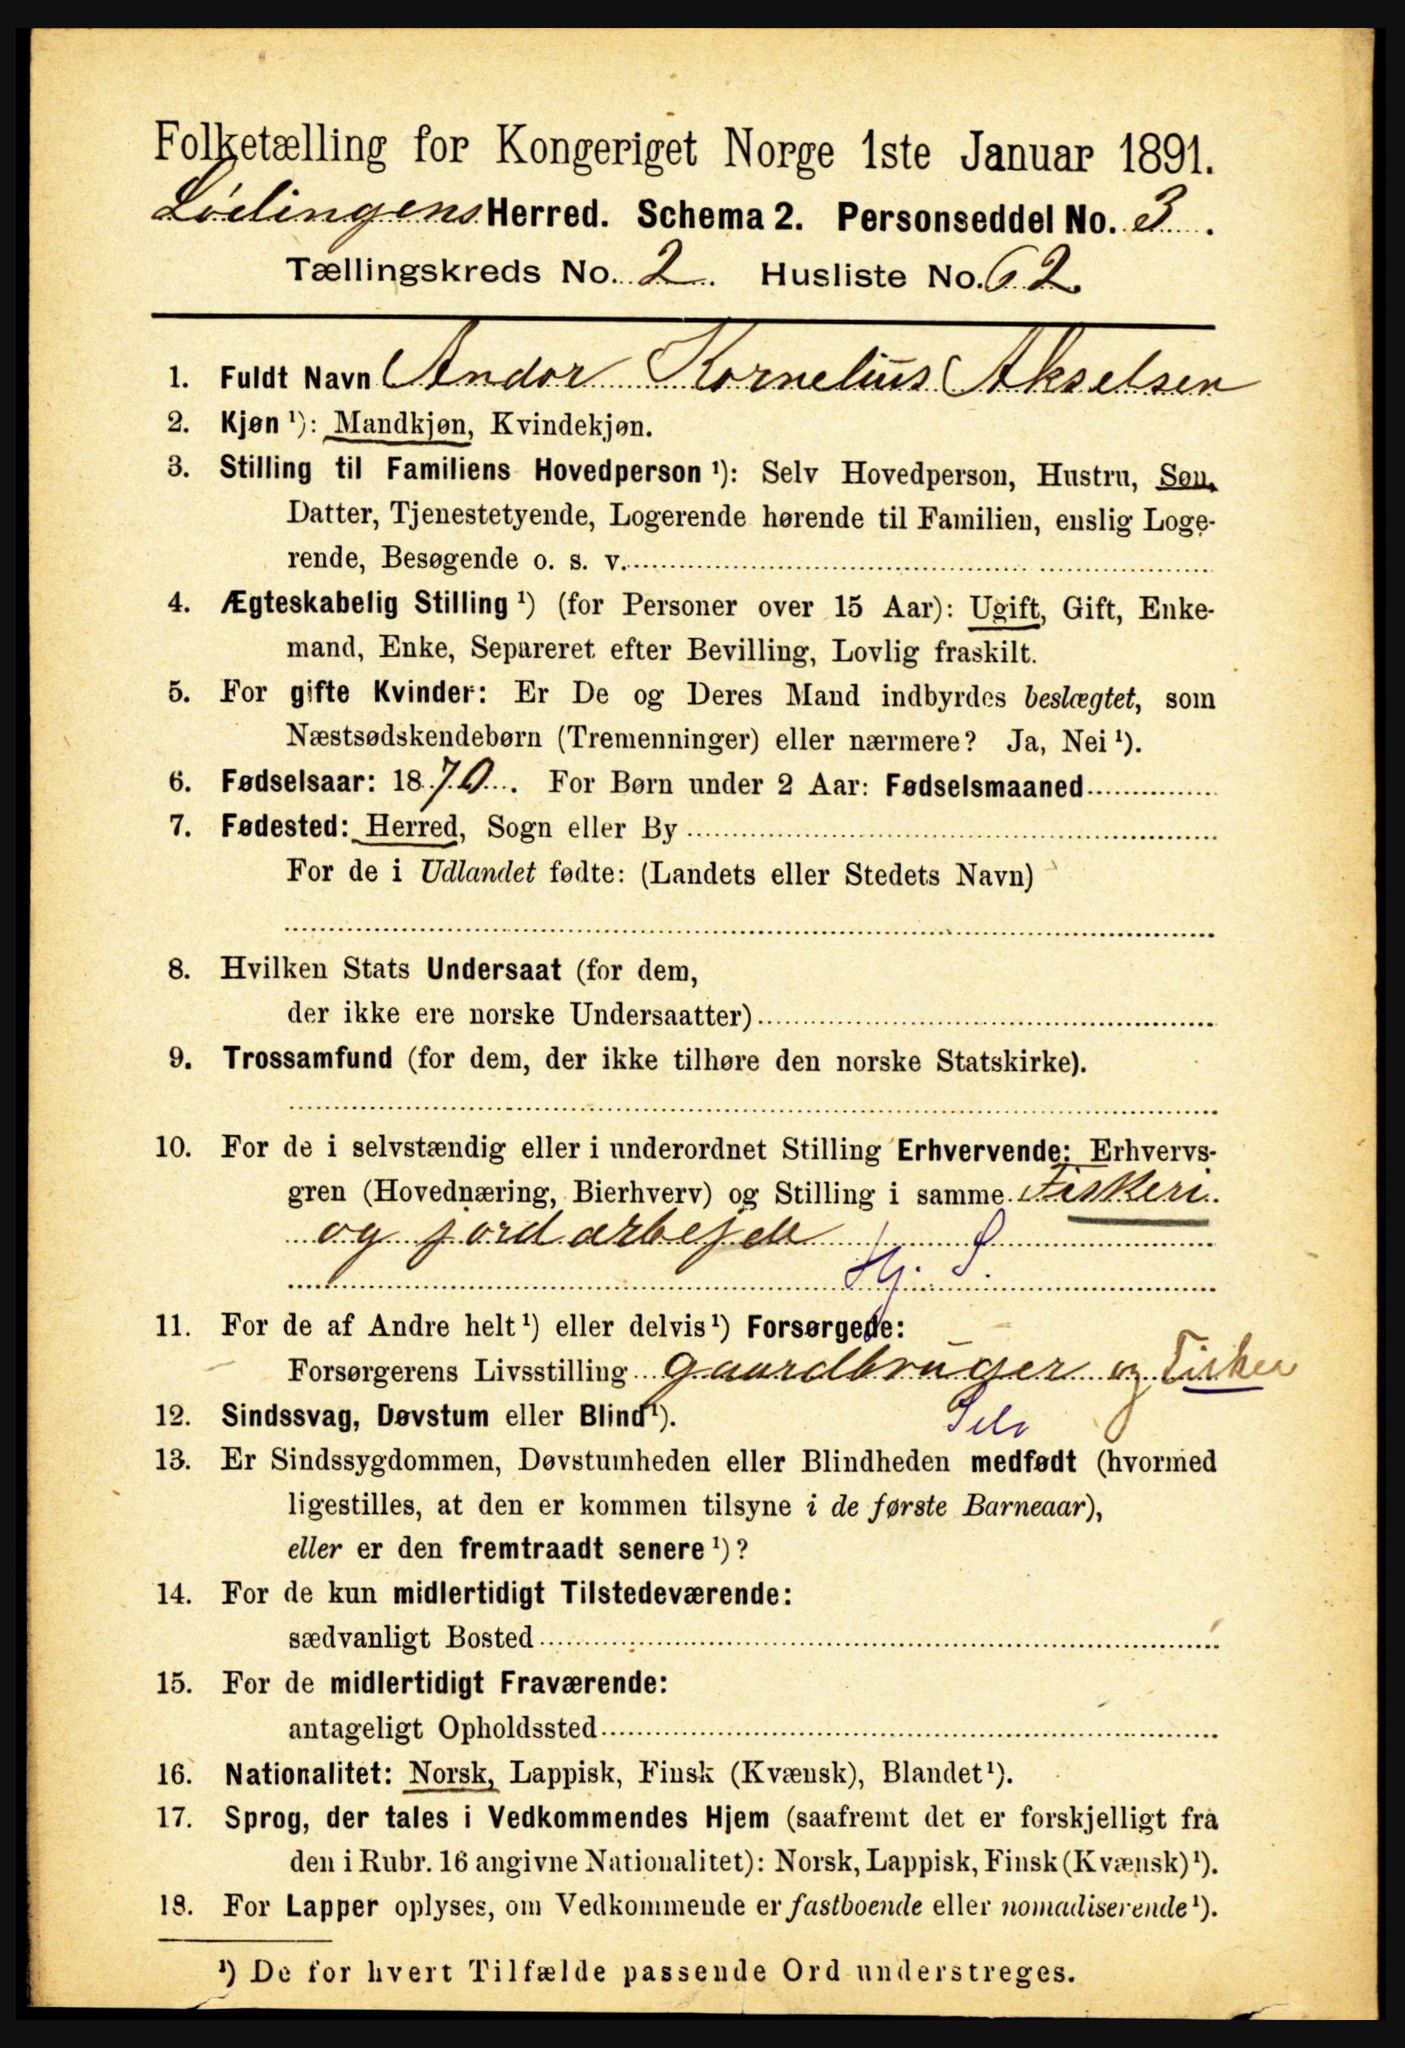 Folketælling for Kongeriget Norge 1ste Januar 1891.
Lødingens Herred. Schema 2. Personseddel No. 3.
Tællingskreds No. 2. Husliste No. 62.
1. Fuldt Navn Andor Kornelius Akselsen
2. Kjøn ¹): Mandkjøn, Kvindekjøn.
3. Stilling til Familiens Hovedperson ¹): Selv Hovedperson, Hustru, Søn,
Datter, Tjenestetyende, Logerende hørende til Familien, enslig Loge-
rende, Besøgende o. s. v.
4. Ægteskabelig Stilling ¹) (for Personer over 15 Aar): Ugift, Gift, Enke-
mand, Enke, Separeret efter Bevilling, Lovlig fraskilt.
5. For gifte Kvinder: Er De og Deres Mand indbyrdes beslægtet, som
Næstsødskendebørn (Tremenninger) eller nærmere? Ja, Nei ¹).
6. Fødselsaar: 1870. For Børn under 2 Aar: Fødselsmaaned
7. Fødested: Herred, Sogn eller By
For de i Udlandet fødte: (Landets eller Stedets Navn)
8. Hvilken Stats Undersaat (for dem,
der ikke ere norske Undersaatter)
9. Trossamfund (for dem, der ikke tilhøre den norske Statskirke).
10. For de i selvstændig eller i underordnet Stilling Erhvervende: Erhvervs-
gren (Hovednæring, Bierhverv) og Stilling i samme Fiskeri
og jordarbejde
Hj. S.
11. For de af Andre helt ¹) eller delvis ¹) Forsørgede:
Forsørgerens Livsstilling gaardbruger og Fisker
Selv
12. Sindssvag, Døvstum eller Blind ¹).
13. Er Sindssygdommen, Døvstumheden eller Blindheden medfødt (hvormed
ligestilles, at den er kommen tilsyne i de første Barneaar),
eller er den fremtraadt senere ¹)?
14. For de kun midlertidigt Tilstedeværende:
sædvanligt Bosted
15. For de midlertidigt Fraværende:
antageligt Opholdssted
16. Nationalitet: Norsk, Lappisk, Finsk (Kvænsk), Blandet ¹).
17. Sprog, der tales i Vedkommendes Hjem (saafremt det er forskjelligt fra
den i Rubr. 16 angivne Nationalitet): Norsk, Lappisk, Finsk (Kvænsk) ¹).
18. For Lapper oplyses, om Vedkommende er fastboende eller nomadiserende ¹).
¹) De for hvert Tilfælde passende Ord understreges.